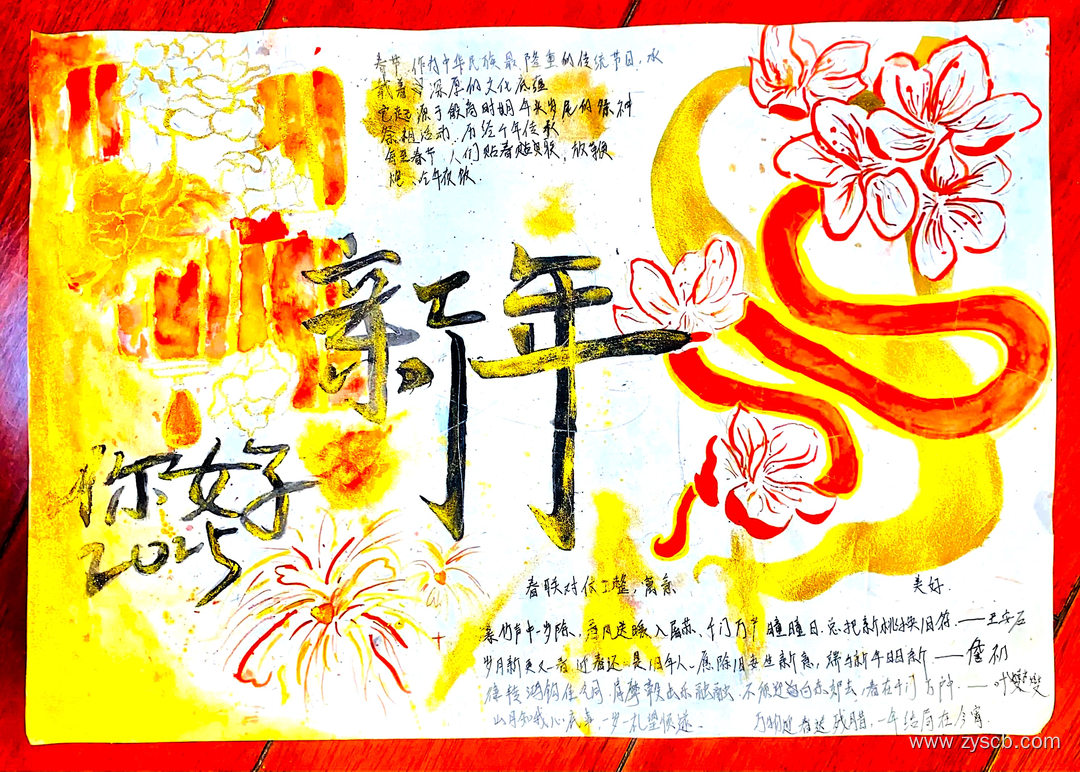 春节,作为中华民族最隆重的传统节日,承
载着深厚的文化底蕴
它起源于殷商时期年头岁尾的祭神
祭祖活动,历经千年传承
每至春节,人们贴春联,放鞭
炮、吃年夜饭.
新年
你好
2025
春联对仗工整,寓意
美好.
爆竹声中一岁除,春风送暖入屠苏、千门万户瞳瞳日.总把新桃换旧符.——王安石
岁月新更又一春,迎春还是旧年人.愿除旧妄生新意,端与新年日日新——詹初
看在千门万户.——叶燮
万物迎春送残腊.一年结局在今宵.
www.zyscb.com